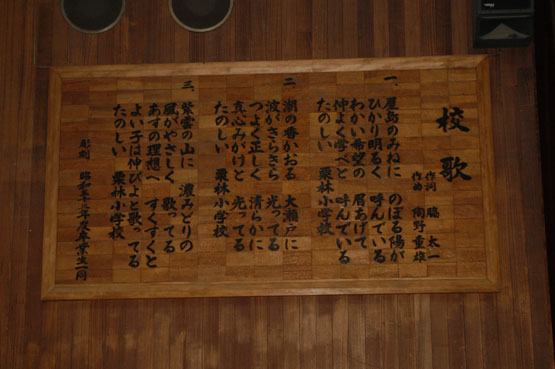 校歌
作詞 脇 太一
作曲 向野重雄
一、屋島のみねに のぼる陽が
ひかり明るく 呼んでいる
わかい希望の 眉あげて
仲よく学べと 呼んでいる
たのしい 栗林小学校
二、潮の香かおる 大瀬戸に
波がきらきら 光ってる
つよく正しく 清らかに
真心みがけと 光ってる
たのしい 栗林小学校
三、紫雲の山に 濃みどりの
風がやさしく 歌ってる
あすの理想へ すくすくと
よい子は伸びよと歌ってる
たのしい 栗林小学校
彫刻 昭和五十二年度卒業生一同